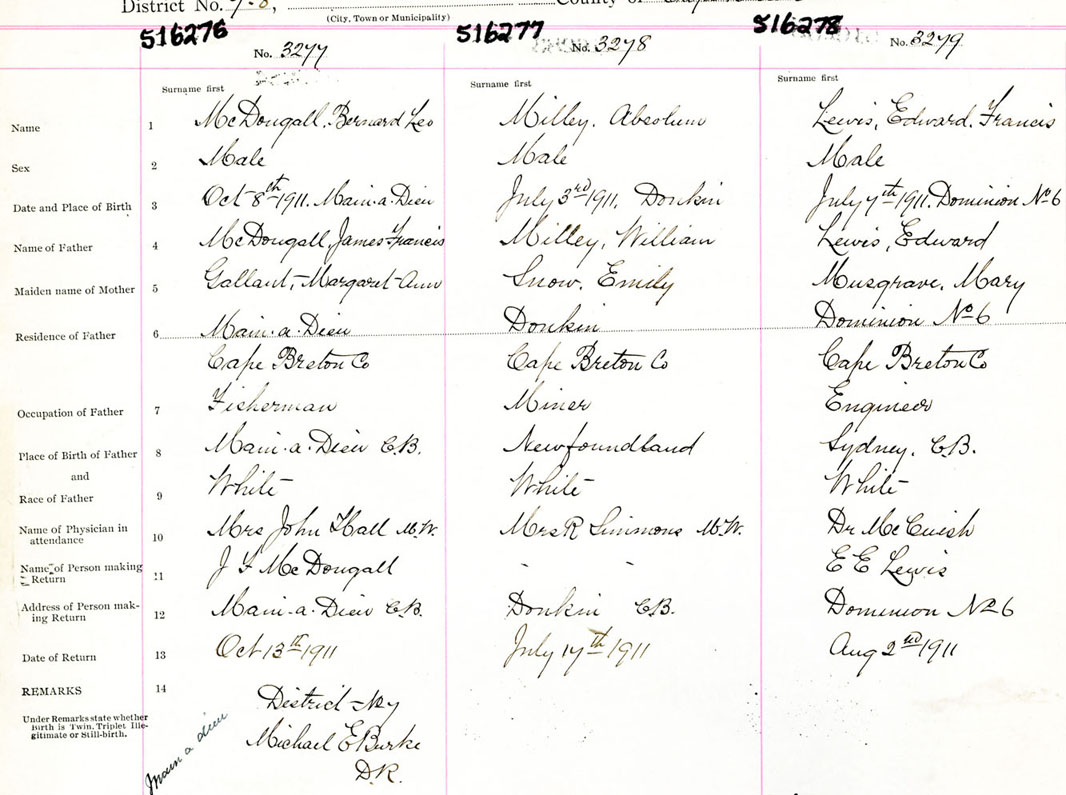 District No. 7-8, County of
(City, Town or Municipality)
516276 516277 516278
No. 3277 No. 3278 No. 3279
Surname first Surname first Surname first
Name 1 McDougall, Bernard Leo Milley. Absolum Lewis, Edward. Francis
Sex 2 Male Male Male
Date and Place of Birth 3 Oct 8th 1911. Main-a-Dieu July 3rd 1911, Donkin July 7th 1911. Dominion No 6
Name of Father 4 McDougall, James Francis Milley, William Lewis, Edward
Maiden name of Mother 5 Gallant, Margaret Ann Snow, Emily Musgrave, Mary
Residence of Father 6 Main-a-Dieu Donkin Dominion No 6
Cape Breton Co Cape Breton Co Cape Breton Co
Occupation of Father 7 Fisherman Miner Engineer
Place of Birth of Father 8 Main-a-Dieu C.B. Newfoundland Sydney. C.B.
and
Race of Father 9 White White White
Name of Physician in attendance 10 Mrs John Hall M.W. Mrs R Simmons M.W. Dr McCuish
Name of Person making Return 11 J F McDougall - - E E Lewis
Address of Person making Return 12 Main-a-Dieu C.B. Donkin C.B. Dominion No 6
Date of Return 13 Oct 13th 1911 July 17th 1911 Aug 2nd 1911
REMARKS 14
Under Remarks state whether Birth is Twin, Triplet Illegitimate or Still-birth.
District
Michael E Burke
D.R.
Main a dieu